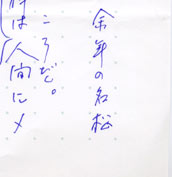 余年の名松
ころだ。
は人間にメ